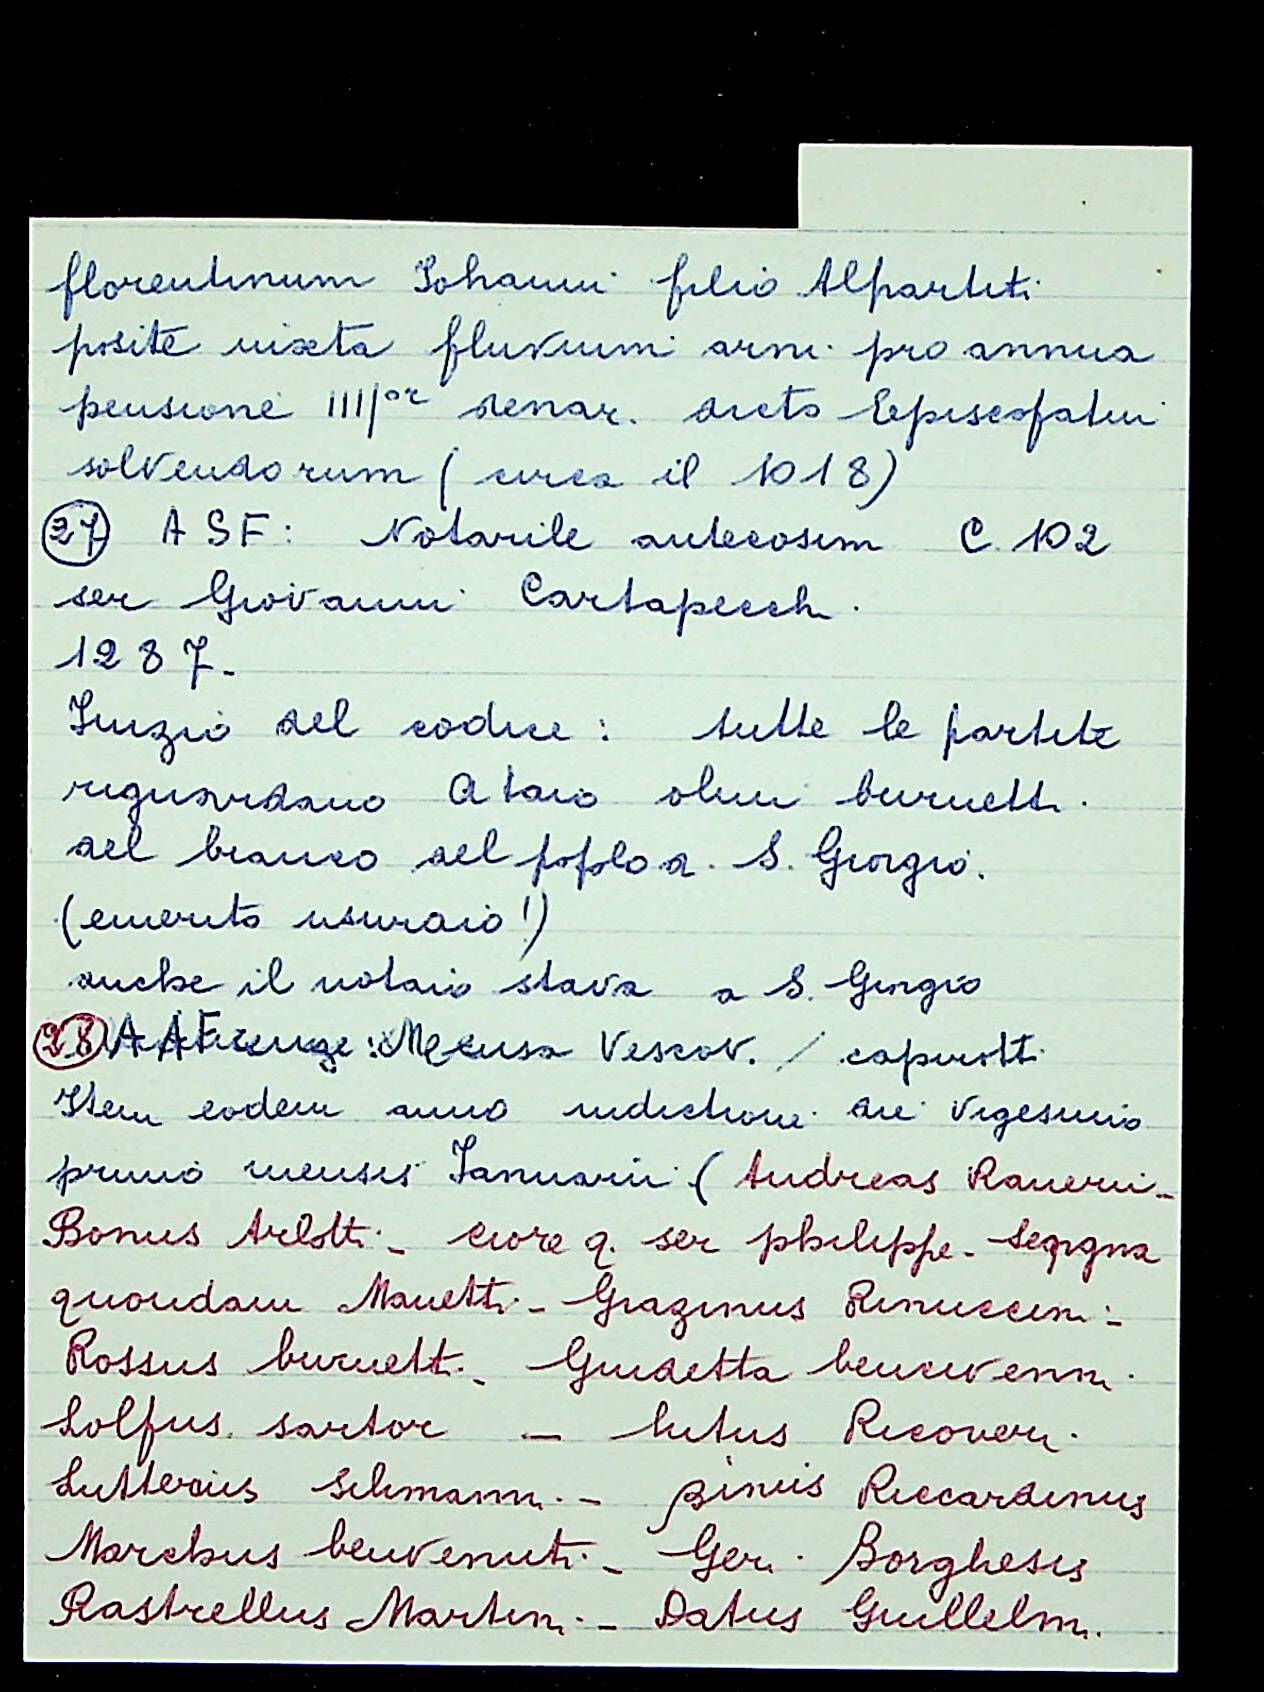 florentinum Iohanni filio Alpartiti
posite iuxta fluvium arni pro annua
pensione IIIIor denar. dicto Episcopatui
solvendorum (circa il 1018)
27 ASF: Notarile antecosim C. 102
ser Giovanni Cartapecchi
1287-
Inizio del codice: tutte le partite
riguardano Ataio olim burnetti
del bianco del popolo di S. Giorgio.
(emerito usuraio!)
anche il notaio stava a S. Giorgio
28 AAF Mensa Vescov. / capirotti
Item eodem anno indictione die vigesimo
primo mensis Ianuarii (Andreas Ranerii -
Bonus Arlotti - Ciore q. ser philippe - Segna
quondam Manetti - Grazinus Rinuccini -
Rossus burnetti - Guidetta bencivenni
Lolfus sartor - Lutus Ricoveri
Lutterius Silimanni - pinus Riccardinus
Marchus benvenuti - Geri Borghesis
Rastrellus Martini - Datus Guillelmi